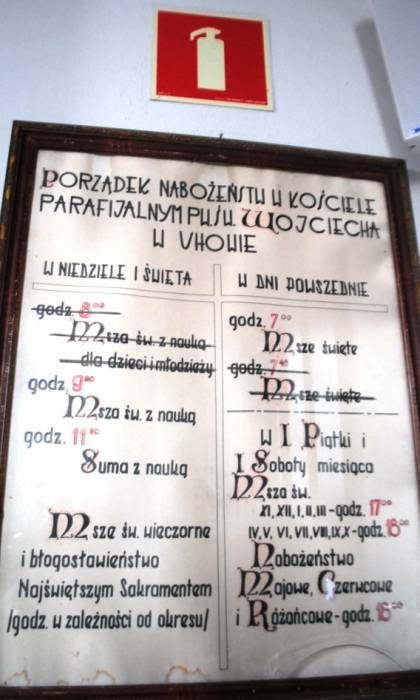 PORZĄDEK NABOŻEŃSTW W KOŚCIELE
PARAFIJALNYM P.W. ŚW. WOJCIECHA
W UHOWIE
W NIEDZIELE I ŚWIĘTA
godz. 8⁰⁰
Msza św. z nauką
dla dzieci i młodzieży
godz. 9
Msza św. z nauką
godz. 11
Suma z nauką
Msze św. wieczorne
i błogosławieństwo
Najświętszym Sakramentem
/godz. w zależności od okresu/
W DNI POWSZEDNIE
godz. 7⁰⁰
Msze święte
godz. 7
Msze święte
W I Piątki i
I Soboty miesiąca
Msza św.
XI, XII, I, II, III - godz. 17⁰⁰
IV, V, VI, VII, VIII, IX, X - godz. 18⁰⁰
Nabożeństwo
Majowe, Czerwcowe
i Różańcowe - godz.